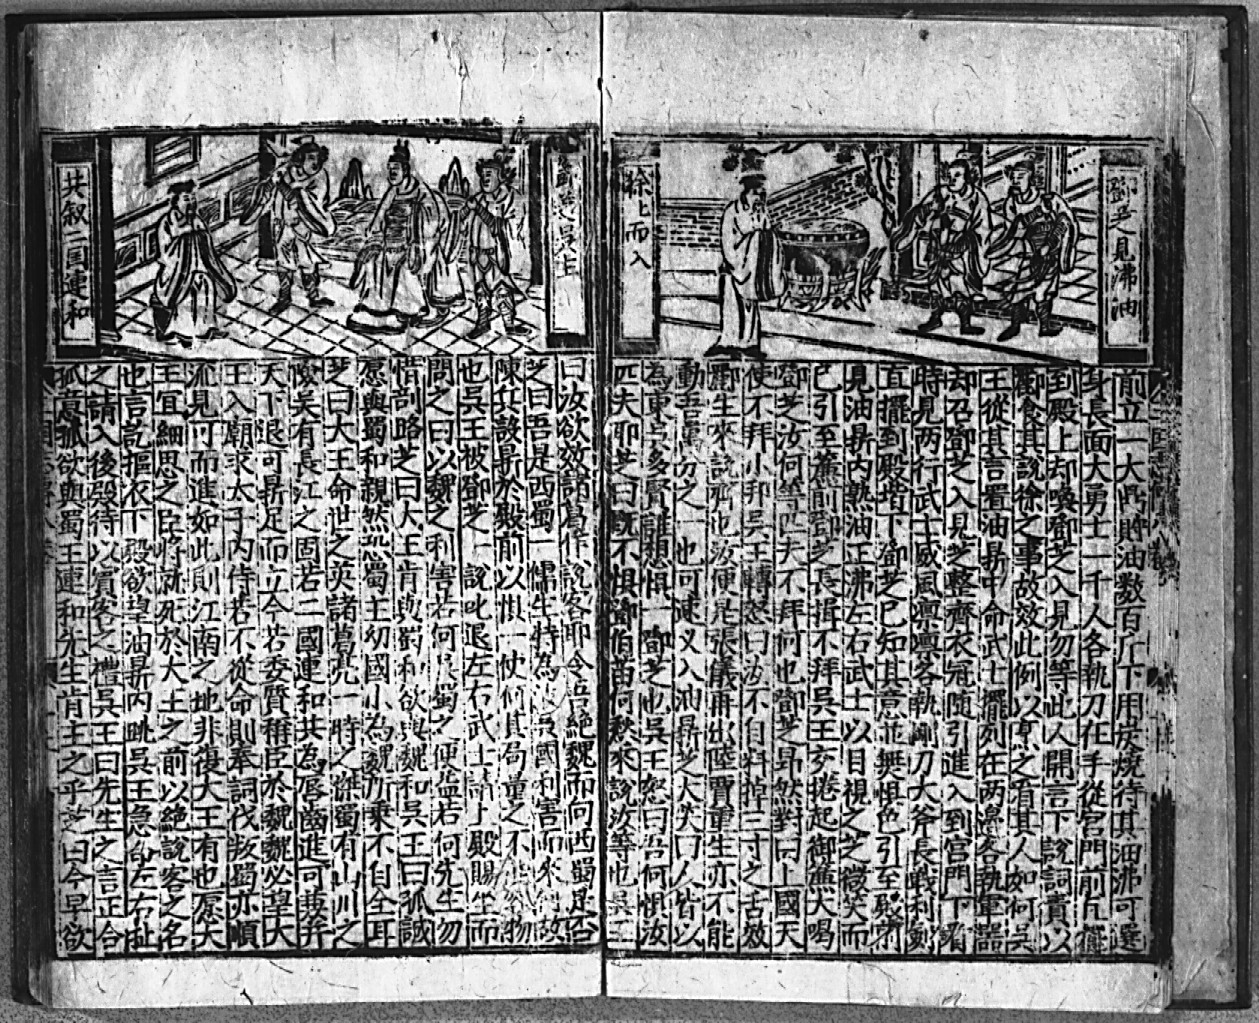 鄧芝見沸油
徐上而入
前立一大鼎貯油数百斤下用炭燒待其油沸可選
身長面大勇士一千人各執刀在手從宮門前直擺
到殿上却喚鄧芝入見勿等此人開言下說詞責以
酈食其說徐之事故效此例以烹之看其人如何吳
王從其言置油鼎中命武士擺列在两邊各執軍器
却召鄧芝入見芝整齊衣冠随引進入到宮門下看
時見两行武士威風凛凛各執剛刀大斧長戟利劍
直擺到殿堦下鄧芝已知其意並無惧色引至殿前
見油鼎内熱油正沸左右武士以目視之芝微笑而
已引至簾前鄧芝長揖不拜吳王交捲起御簾大喝
鄧芝汝何等匹夫不拜何也鄧芝昂然對曰上國天
使不拜小邦吳王轉怒曰汝不自料掉三寸之舌效
酈生來說齊也汝便是張儀再出陸賈重生亦不能
動吾 之一也可速义入油鼎芝大笑曰人皆以
為東吳多賢誰想惧一鄧芝也吳王怒曰吾何惧汝
匹夫耶芝曰既不惧鄧伯苗何愁來說汝等也吳王
曰汝欲效諸葛作說客耶令吾絶魏而向西蜀是否
芝曰吾是西蜀一儒生特為 吳國利害而來 故
陳兵設鼎於殿前以惧一使何其局量之不能 物
也吳王被鄧芝一說叱退左右武士請上殿賜坐而
問之曰以魏之利害若何吳蜀之便益若何先生勿
惜剖略芝曰大王肯與蜀和欲與魏和吳王曰孤誠
愿與蜀和親然恐蜀王幼國小為魏所乗不自全耳
芝曰大王命世之英諸葛亮一時之傑蜀有山川之
險吳有長江之固若二國連和共為唇齒進可兼并
天下退可鼎足而立今若委質稱臣於魏魏必望大
王入朝求太子内侍若不從命則奉詞伐叛蜀亦順
流見可而進如此則江南之地非復大王有也愿大
王宜細思之臣將就死於大王之前以絶說客之名
也言訖摳衣下殿欲望油鼎内跳吳王急命左右扯
之請入後殿待以賓客之禮吳王曰先生之言正合
孤意孤欲與蜀王連和先生肯主之乎芝曰今早欲
鄧芝 吳主
共叙二国連和